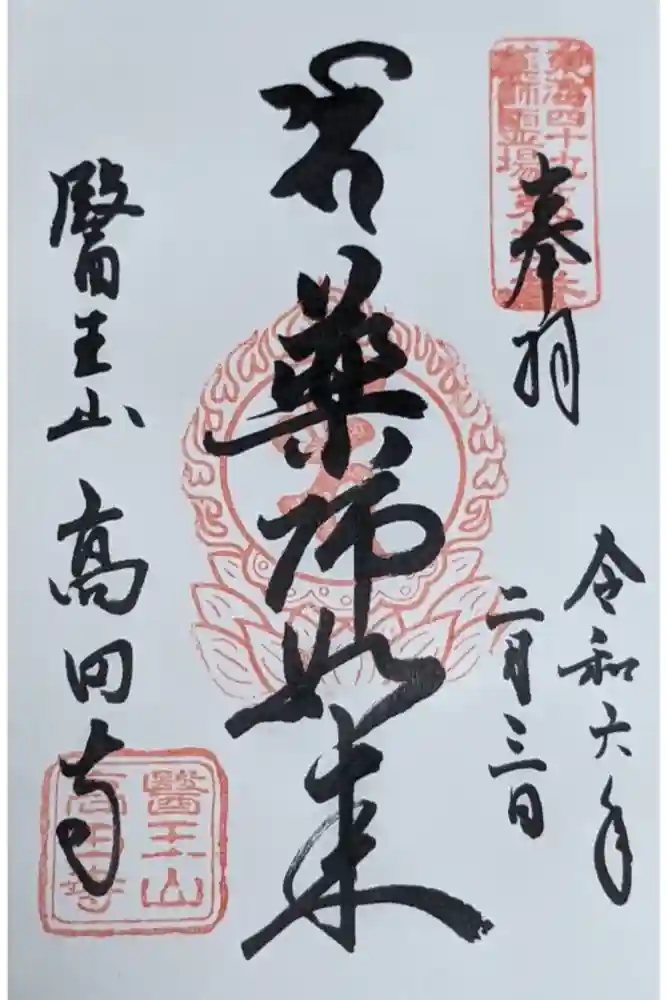 東海四十九
薬師霊場
奉拝
令和六年
二月三日
薬師如来
醫王山 高田寺
醫王山
高田寺